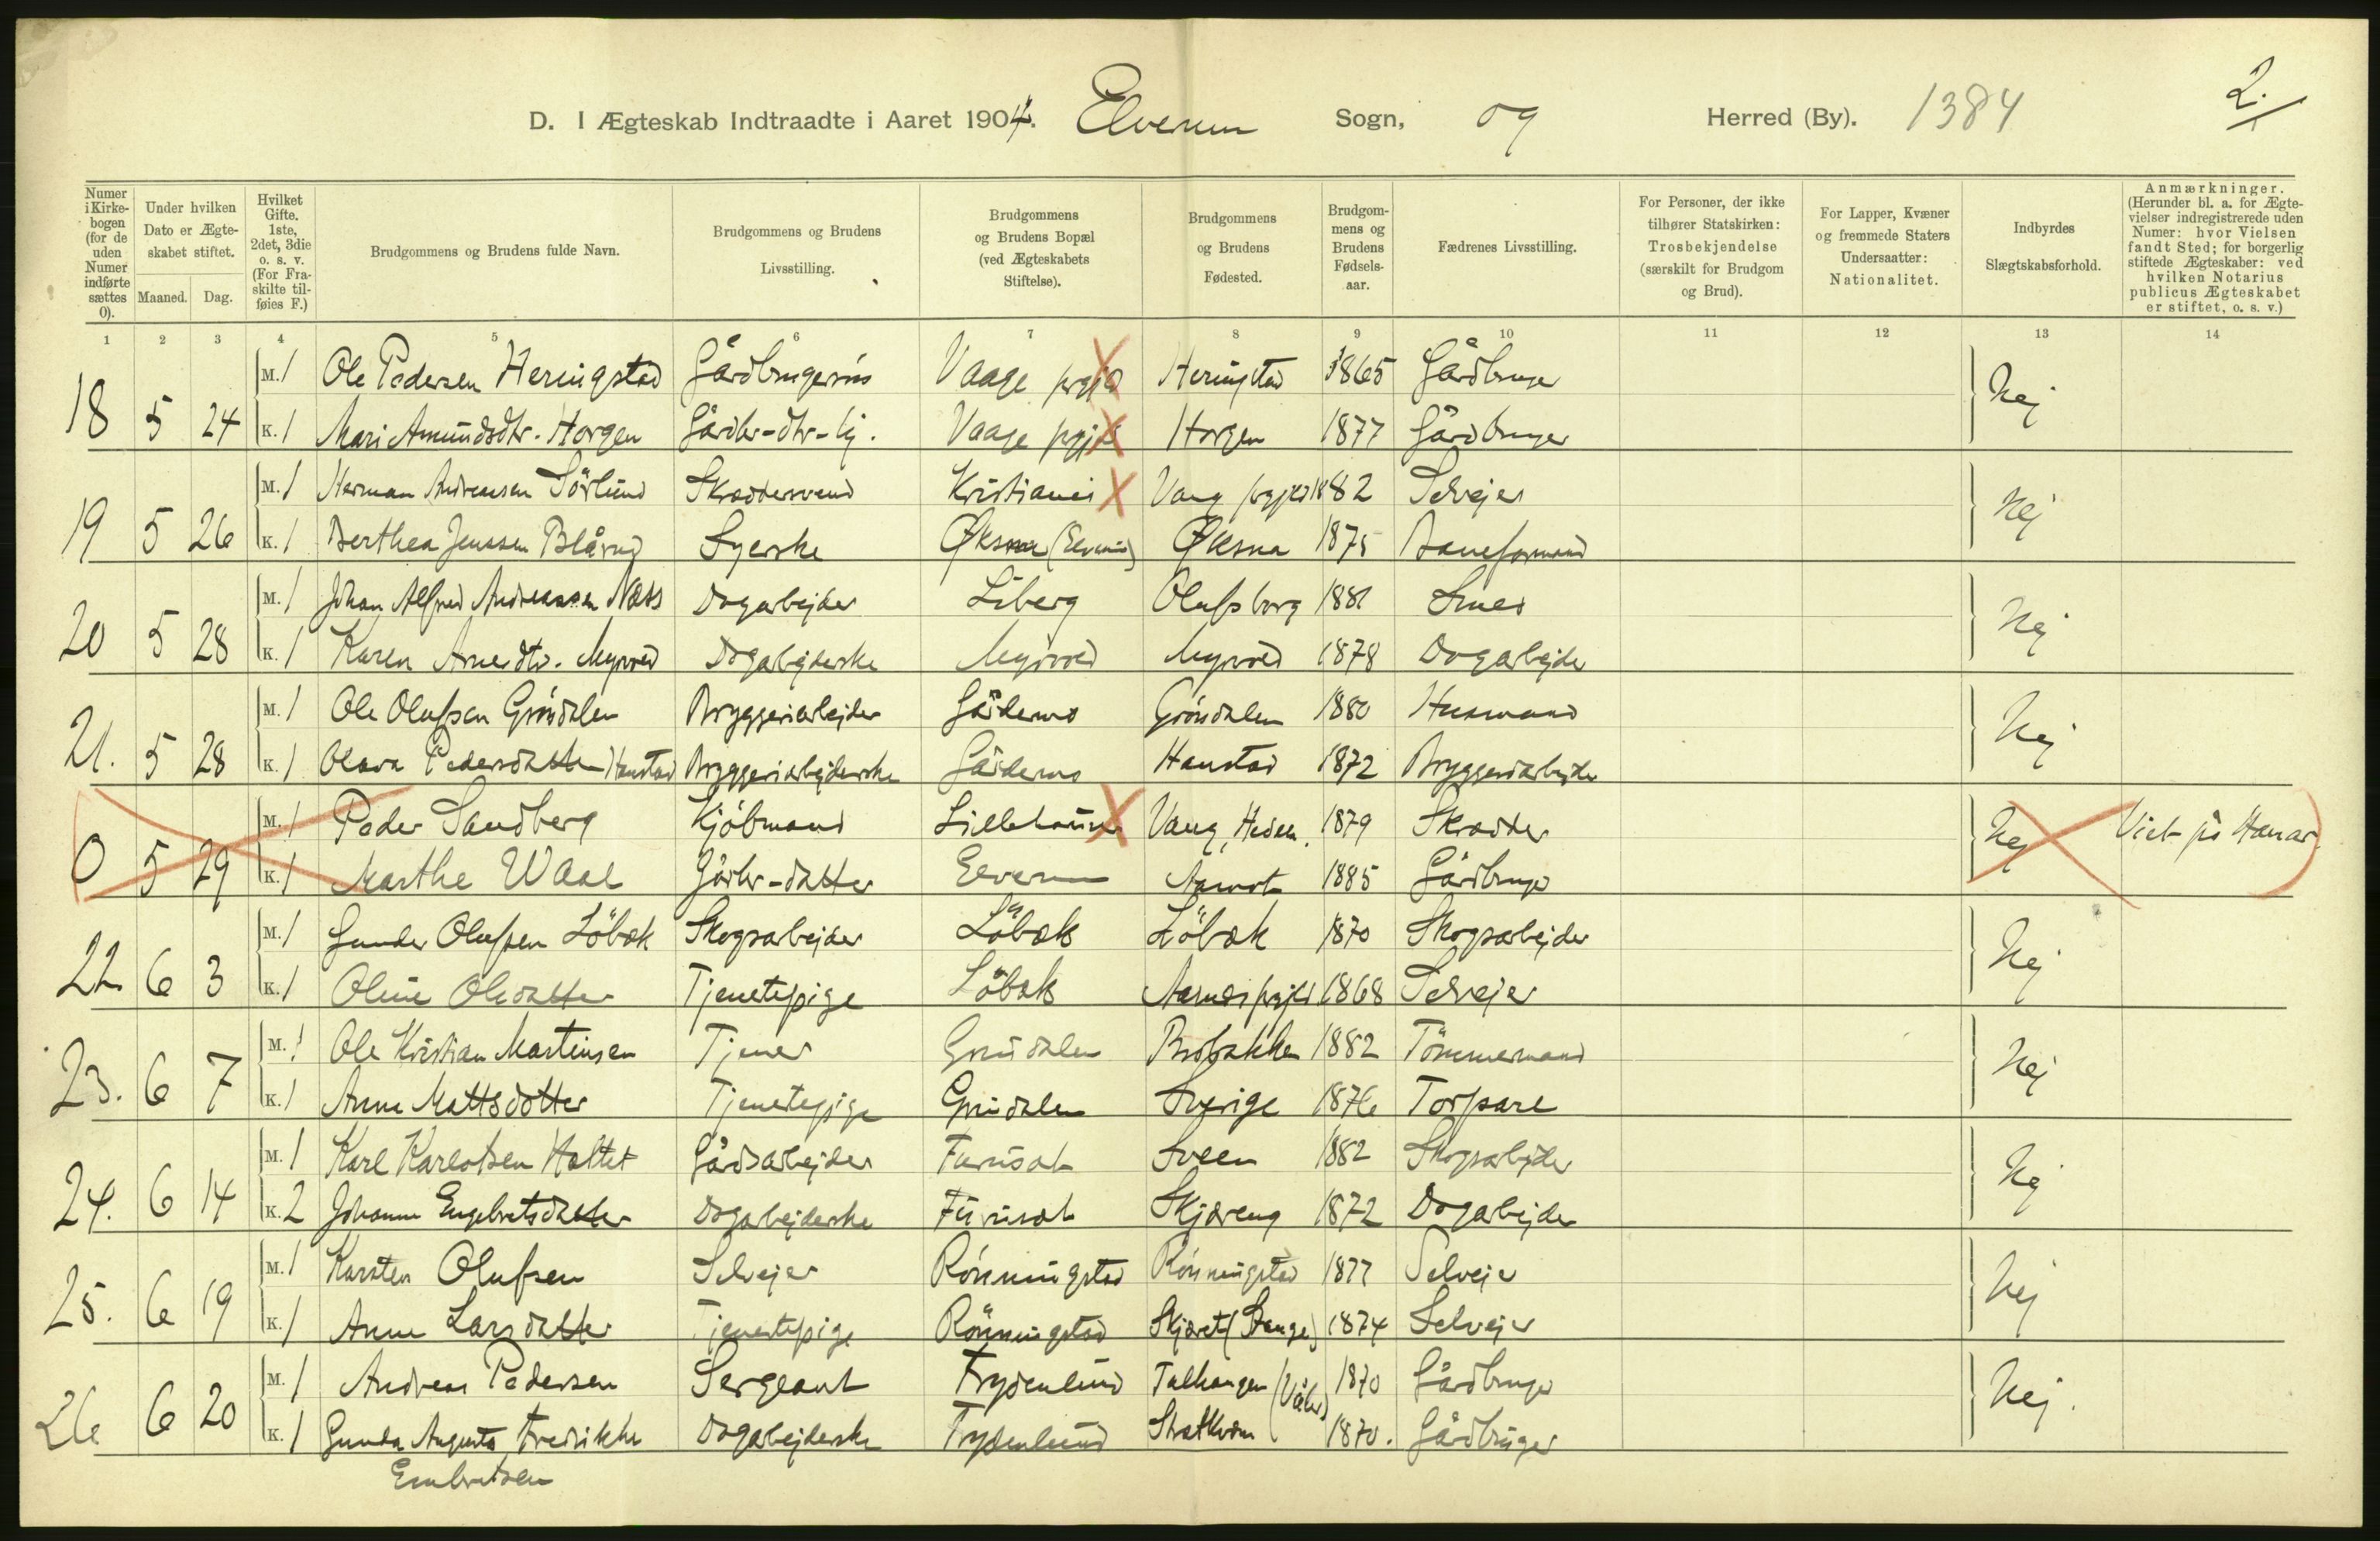 D. I Ægteskab Indtraadte i Aaret 1904. Elverum Sogn, og Herred (By). 1384 2.
Numer i Kirkebogen (for de uden Numer indførte sættes 0).
Under hvilken Dato er Ægteskabet stiftet. Maaned. Dag.
Hvilket Gifte. 1ste, 2det, 3die o. s. v. (For Fraskilte tilføies F.)
Brudgommens og Brudens fulde Navn.
Brudgommens og Brudens Livsstilling.
Brudgommens og Brudens Bopæl (ved Ægteskabets Stiftelse).
Brudgommens og Brudens Fødested.
Brudgommens og Brudens Fødselsaar.
Fædrenes Livsstilling.
For Personer, der ikke tilhører Statskirken: Trosbekjendelse (særskilt for Brudgom og Brud).
For Lapper, Kvæner og fremmede Staters Undersaatter: Nationalitet.
Indbyrdes Slægtskabsforhold.
Anmærkninger. (Herunder bl. a. for Ægtevielser indregistrerede uden Numer: hvor Vielsen fandt Sted; for borgerlig stiftede Ægteskaber: ved hvilken Notarius publicus Ægteskabet er stiftet, o. s. v.)
1 2 3 4 5 6 7 8 9 10 11 12 13 14
M. 1 Ole Pedersen Heringstad Gårdbrugersøn Vaage prgjld Heringstad 1865 Gårdbruger
18 5 24 K. 1 Mari Amundsdtr. Horgen Gårdbr-dtr- Vaage prgjld Horgen 1877 Gårdbruger Nej
M. 1 Herman Andreasen Sörlund Skræddersvend Kristiania Vang prgjld 1882 Selvejer
19 5 26 K. 1 Berthea Jenssen Blårud Syerske Øksna (Elverum) Øksna 1875 Baneformand Nej
M. 1 Johan Alfred Andreassen Næss Dagarbejder Liberg Olufsborg 1881 Smed
20 5 28 K. 1 Karen Arnedtr. Myrvold Dagarbejderske Myrvold Myrvold 1878 Dagarbejder Nej
M. 1 Ole Olufsen Gröndalen Bryggeriarbejder Gårderud Gröndalen 1880 Husmand
21. 5 28 K. 1 Olava Pedersdatter Hanstad Bryggeriarbejderske Gårderud Hanstad 1872 Bryggeriarbejder Nej
M. 1 Peder Sandberg Kjöbmand Lillehammer Vang, Hedem. 1879 Skrædder
0 5 29 K. 1 Marthe Waal Gårdbr-datter Elverum Aamot 1885 Gårdbruger Nej Viet på Hamar
M. 1 Gunder Olufsen Löbæk Skogsarbejder Löbæk Löbæk 1870 Skogsarbejder
22 6 3 K. 1 Oline Olsdatter Tjenestepige Löbæk prgjld 1868 Selvejer Nej
M. 1 Ole Kristian Martinsen Tjener Grindalen Brobakken 1882 Tömmermand
23. 6 7 K. 1 Anna Mattsdotter Tjenestepige Grindalen Sverige 1876 Torpare Nej
M. 1 Karl Karlotsen Holtet Gårdsarbejder Furusæt Sveen 1882 Skogsarbejder
24. 6 14 K. 2 Johanne Engebretsdatter Dagarbejderske Furusæt Skjæreng 1872 Dagarbejder Nej
M. 1 Karsten Olufsen Selvejer Rönningstad Rönningstad 1877 Selvejer
25. 6 19 K. 1 Anne Larsdatter Tjenestepige Rönningstad Skjæret (Stange) 1874 Selvejer Nej
M. 1 Andreas Pedersen Sergeant Frydenlund (Våler) 1870 Gårdbruger
26 6 20 K. 1 Gunda Augusta Fredrikke Dagarbejderske Frydenlund 1870. Gårdbruger Nej.
Embretsen